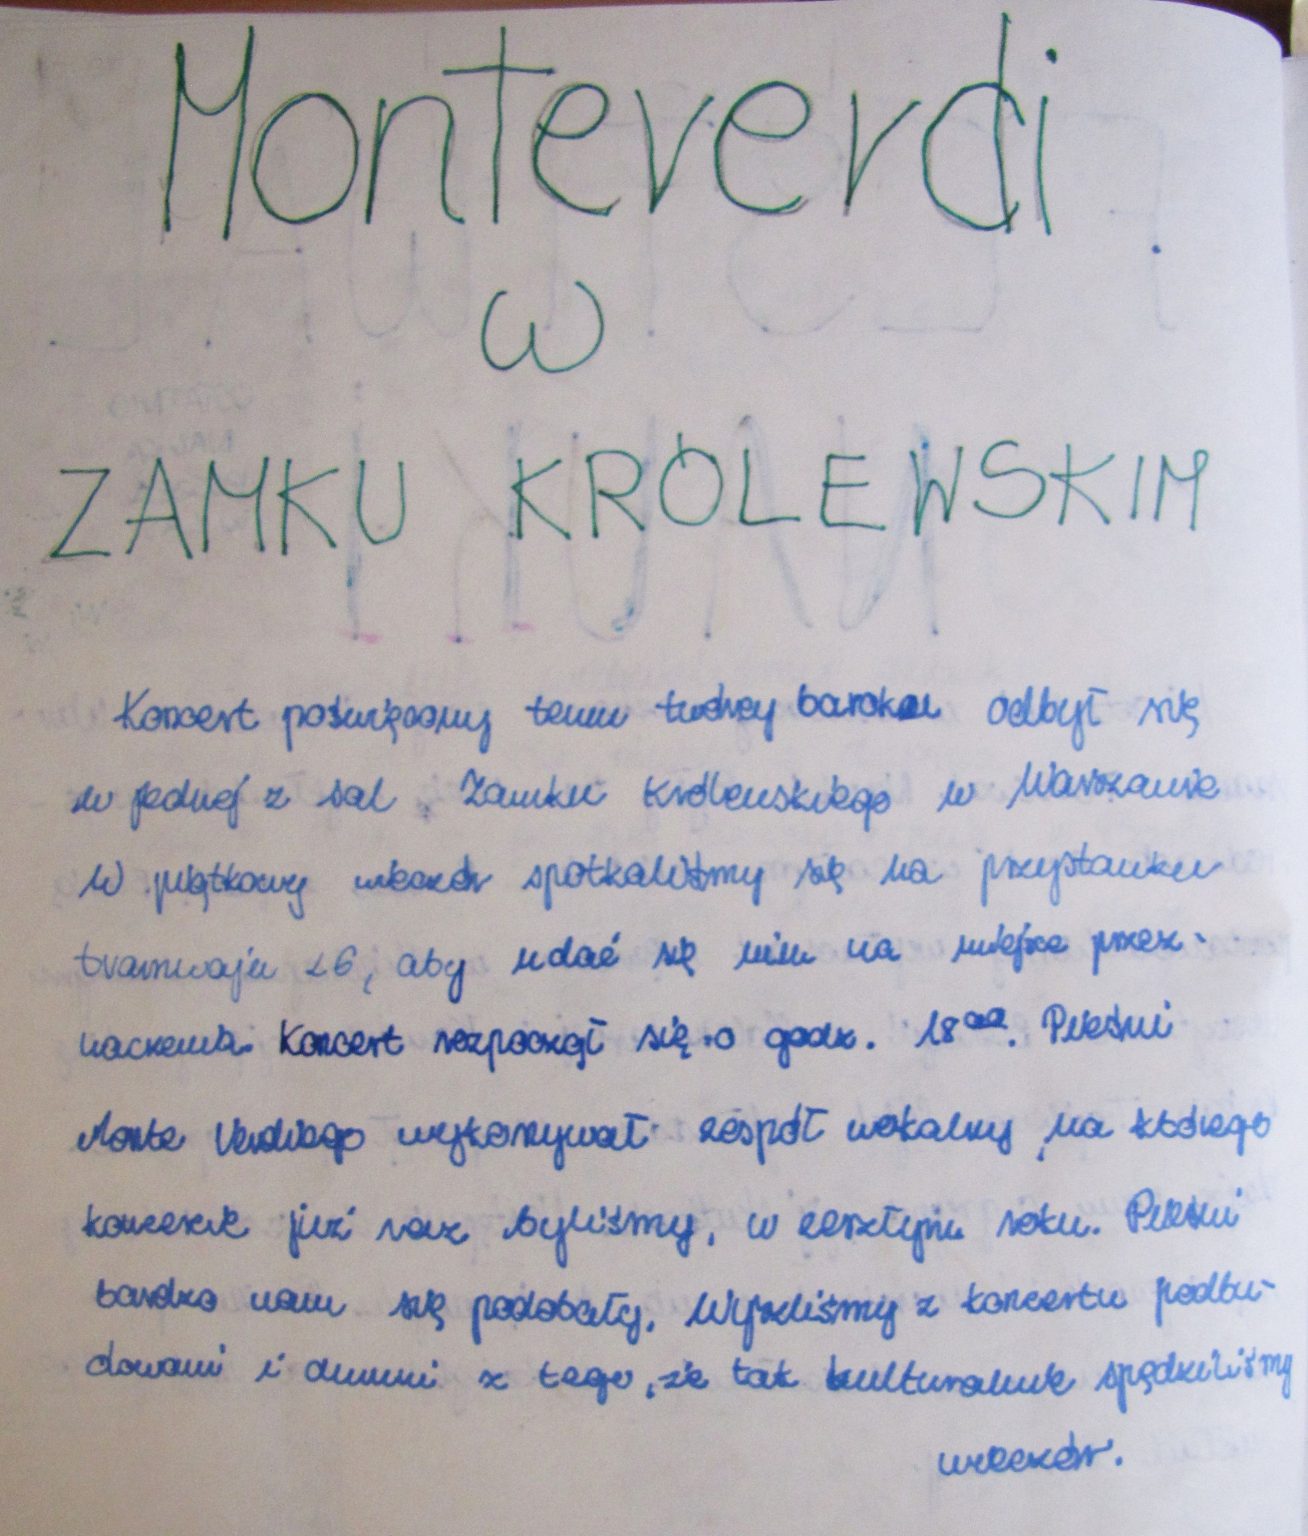 Monteverdi
w
ZAMKU KRÓLEWSKIM
Koncert poświęcony temu twórcy baroku odbył się
w jednej z sal Zamku Królewskiego w Warszawie
W piątkowy wieczór spotkaliśmy się na przystanku
tramwaju 26, aby udać się nim na miejsce przez-
naczenia. Koncert rozpoczął się o godz. 18 00. Pieśni
Monte Verdiego wykonywał zespół wokalny, na którego
koncercie już raz byliśmy, w zeszłym roku. Pieśni
bardzo nam się podobały. Wyszliśmy z koncertu podbu-
dowani i dumni z tego, że tak kulturalnie spędziliśmy
wieczór.